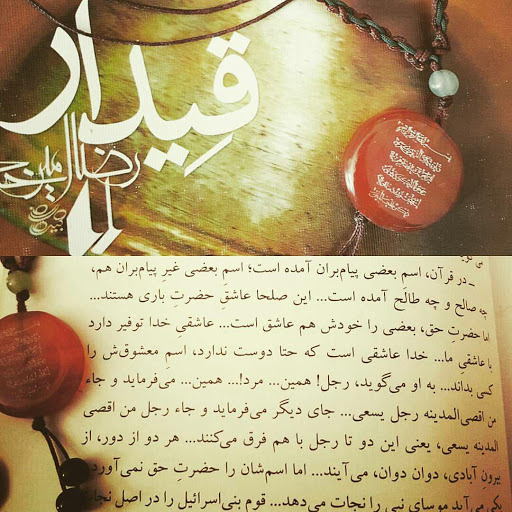 قیدار
رضا امیرخانی
ـ در قرآن، اسم بعضی پیام‌بران آمده است؛ اسم بعضی غیرِ پیام‌بران هم،
چه صالح و چه طالح آمده است... این صلحا عاشقِ حضرتِ باری هستند...
اما حضرتِ حق، بعضی را خودش هم عاشق است... عاشقیِ خدا توفیر دارد
با عاشقیِ ما... خدا عاشقی است که حتا دوست ندارد، اسمِ معشوق‌ش را
کسی بداند... به او می‌گوید، رجل! همین... مرد!... همین... می‌فرماید و جاء
من اقصی‌المدینه رجل یسعی... جای دیگر می‌فرماید و جاء رجل من اقصی
المدینه یسعی، یعنی این دو تا رجل با هم فرق می‌کنند... هر دو از دور، از
بیرونِ آبادی، دوان دوان، می‌آیند... اما اسم‌شان را حضرتِ حق نمی‌آورد
یکی می‌آید موسای نبی را نجات می‌دهد... قوم بنی‌اسرائیل را در اصل نجات